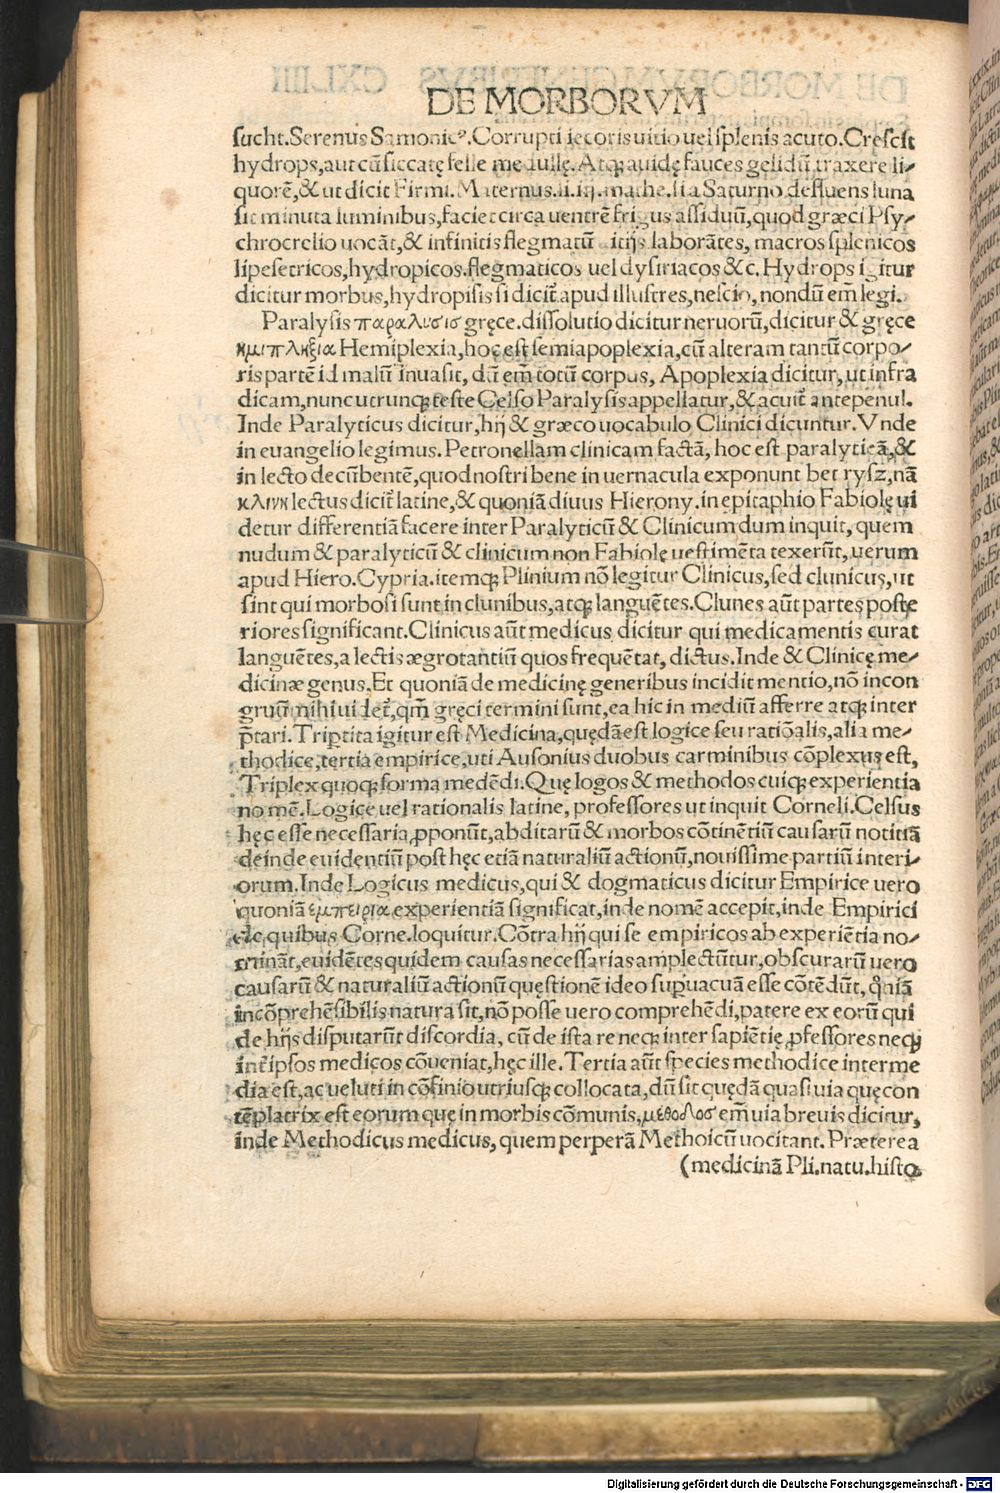 DE MORBORVM
sucht. Serenus Samonicꝰ. Corrupti iecoris uitio uel splenis acuto. Crescit
hydrops, aut cū siccatę felle medullę. Atq; auidę fauces gelidū traxere li⸗
quorē, & ut dicit Firmi. Maternus. ii. iij. mathe. si a Saturno defluens luna
sit minuta luminibus, faciet circa uentrē frigus assiduū, quod græci Psy⸗
chrocrelio uocāt, & infinitis flegmatū itijs laborātes, macros splenicos
lipesetricos, hydropicos. flegmaticos uel dysiriacos &c. Hydrops igitur
dicitur morbus, hydropisis si dicit̄ apud illustres, nescio, nondū em̄ legi.
Paralysis παραλυσισ gręce. dissolutio dicitur neruorū, dicitur & gręce
κμιπληξια Hemiplexia, hoc est semiapoplexia, cū alteram tantū corpo⸗
ris partē id malū inuasit, dū em̄ totū corpus, Apoplexia dicitur, ut infra
dicam, nunc utrunq; teste Celso Paralysis appellatur, & acuit̄ antepenul.
Inde Paralyticus dicitur, hij & græco uocabulo Clinici dicuntur. Vnde
in euangelio legimus. Petronellam clinicam factā, hoc est paralyticā, &
in lecto decūbentē, quod nostri bene in uernacula exponunt bet rysz, nā
κλινκ lectus dicit̄ latine, & quoniā diuus Hierony. in epitaphio Fabiolę ui
detur differentiā facere inter Paralyticū & Clinicum dum inquit, quem
nudum & paralyticū & clinicum non Fabiolę uestimēta texerūt, uerum
apud Hiero. Cypria. itemq; Plinium nō legitur Clinicus, sed clunicus, ut
sint qui morbosi sunt in clunibus, atq; languētes. Clunes aūt partes poste
riores significant. Clinicus aūt medicus dicitur qui medicamentis curat
languētes, a lectis ægrotantiū quos frequētat, dictus. Inde & Clinicę me⸗
dicinæ genus. Et quoniā de medicinę generibus incidit mentio, nō incon
gruū mihi ui det̄, qm̄ gręci termini sunt, ea hic in mediū afferre atq; inter
p̄tari. Trip̄tita igitur est Medicina, quędā est logice seu ratiōalis, alia me⸗
thodice, tertia empirice, uti Ausonius duobus carminibus cōplexus est,
Triplex quoq; forma medēdi. Quę logos & methodos cuiq; experientia
no mē. Logice uel rationalis latine, professores ut inquit Corneli. Celsus
hęc esse necessaria ꝓponūt, abditarū & morbos cōtinētiū causarū notitiā
deinde euidentiū post hęc etiā naturaliū actionū, nouissime partiū interi⸗
orum. Inde Logicus medicus, qui & dogmaticus dicitur Empirice uero
quoniā εμπειρια experientiā significat, inde nomē accepit, inde Empirici
de quibus Corne. loquitur. Cōtra hij qui se empiricos ab experiētia no⸗
mināt, euidētes quidem causas necessarias amplectūtur, obscurarū uero
causarū & naturaliū actionū quęstionē ideo suꝑuacuā esse cōtēdūt, qn̄iā
incōprehēsibilis natura sit, nō posse uero comprehēdi, patere ex eorū qui
de hijs disputarūt discordia, cū de ista re neq; inter sapiētię ꝓfessores neq;
int̄ ipsos medicos cōueniat, hęc ille. Tertia aūt species methodice interme
dia est, ac ueluti in cōfinio utriusq; collocata, dū sit quędā quasi uia quę con
tēplatrix est eorum quę in morbis cōmunis, μεθοδοσ em̄ uia breuis dicitur,
inde Methodicus medicus, quem perperā Methoicū uocitant. Præterea
(medicinā Pli. natu. histo.
Digitalisierung gefördert durch die Deutsche Forschungsgemeinschaft - DFG